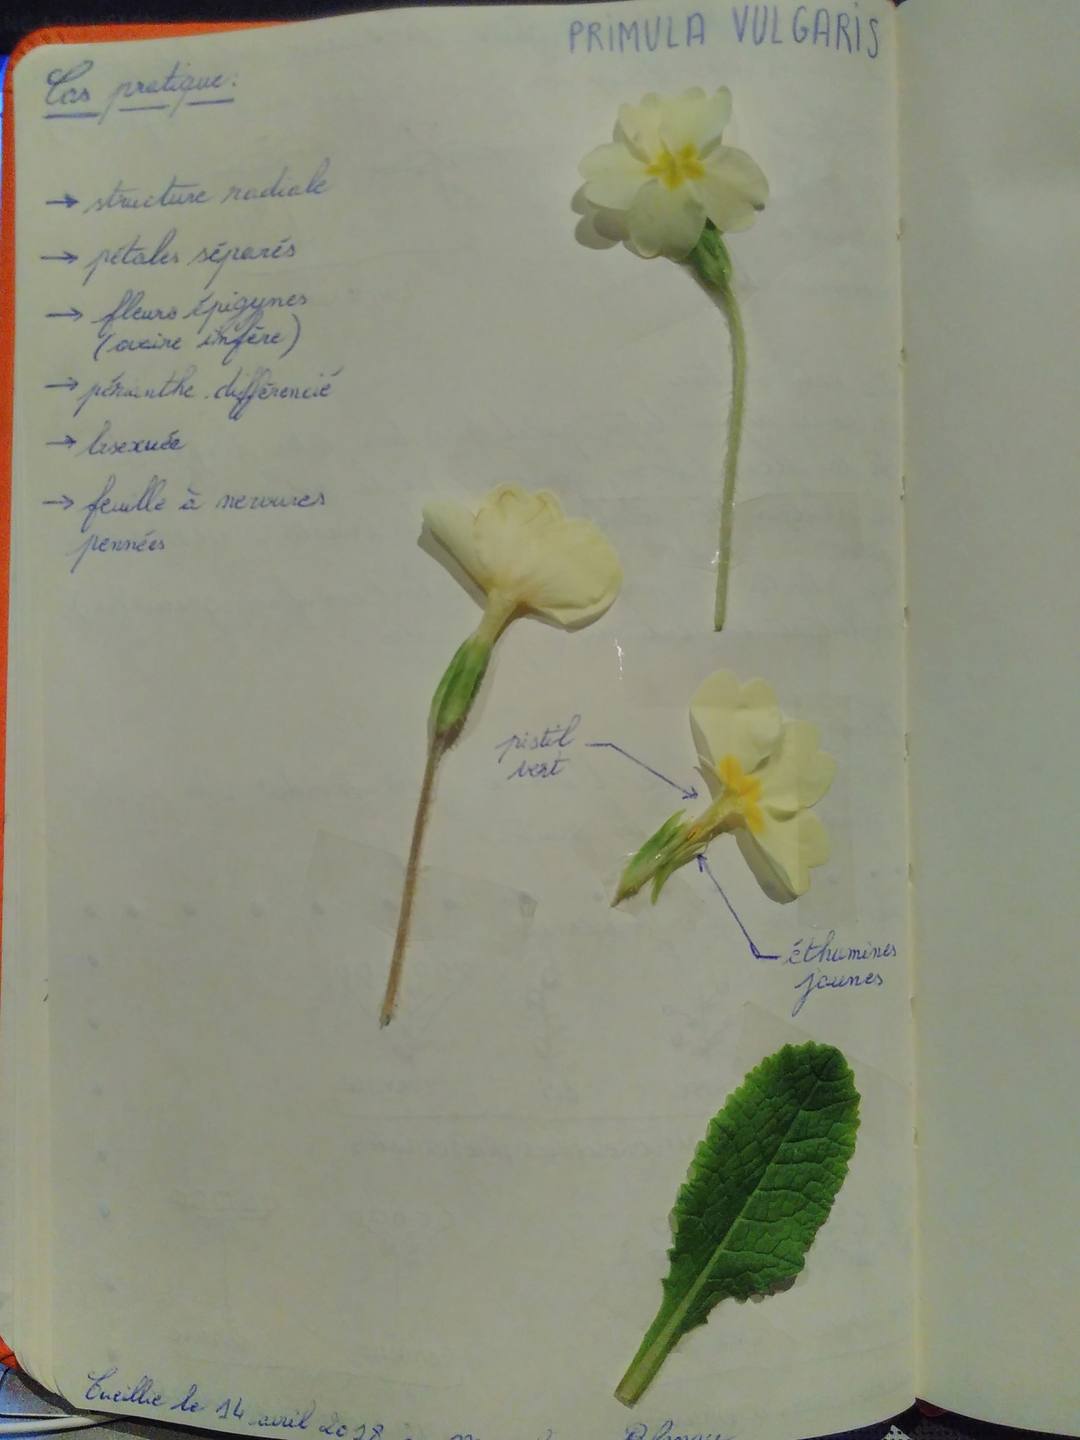 PRIMULA VULGARIS
Cas pratique:
→ structure radiale
→ pétales séparés
→ fleurs épigynes
(ovaire infère)
→ périanthe différencié
→ bisexuée
→ feuille à nervures
pennées
pistil
vert
éthamines
jaunes
Cueillie le 14 avril 2018